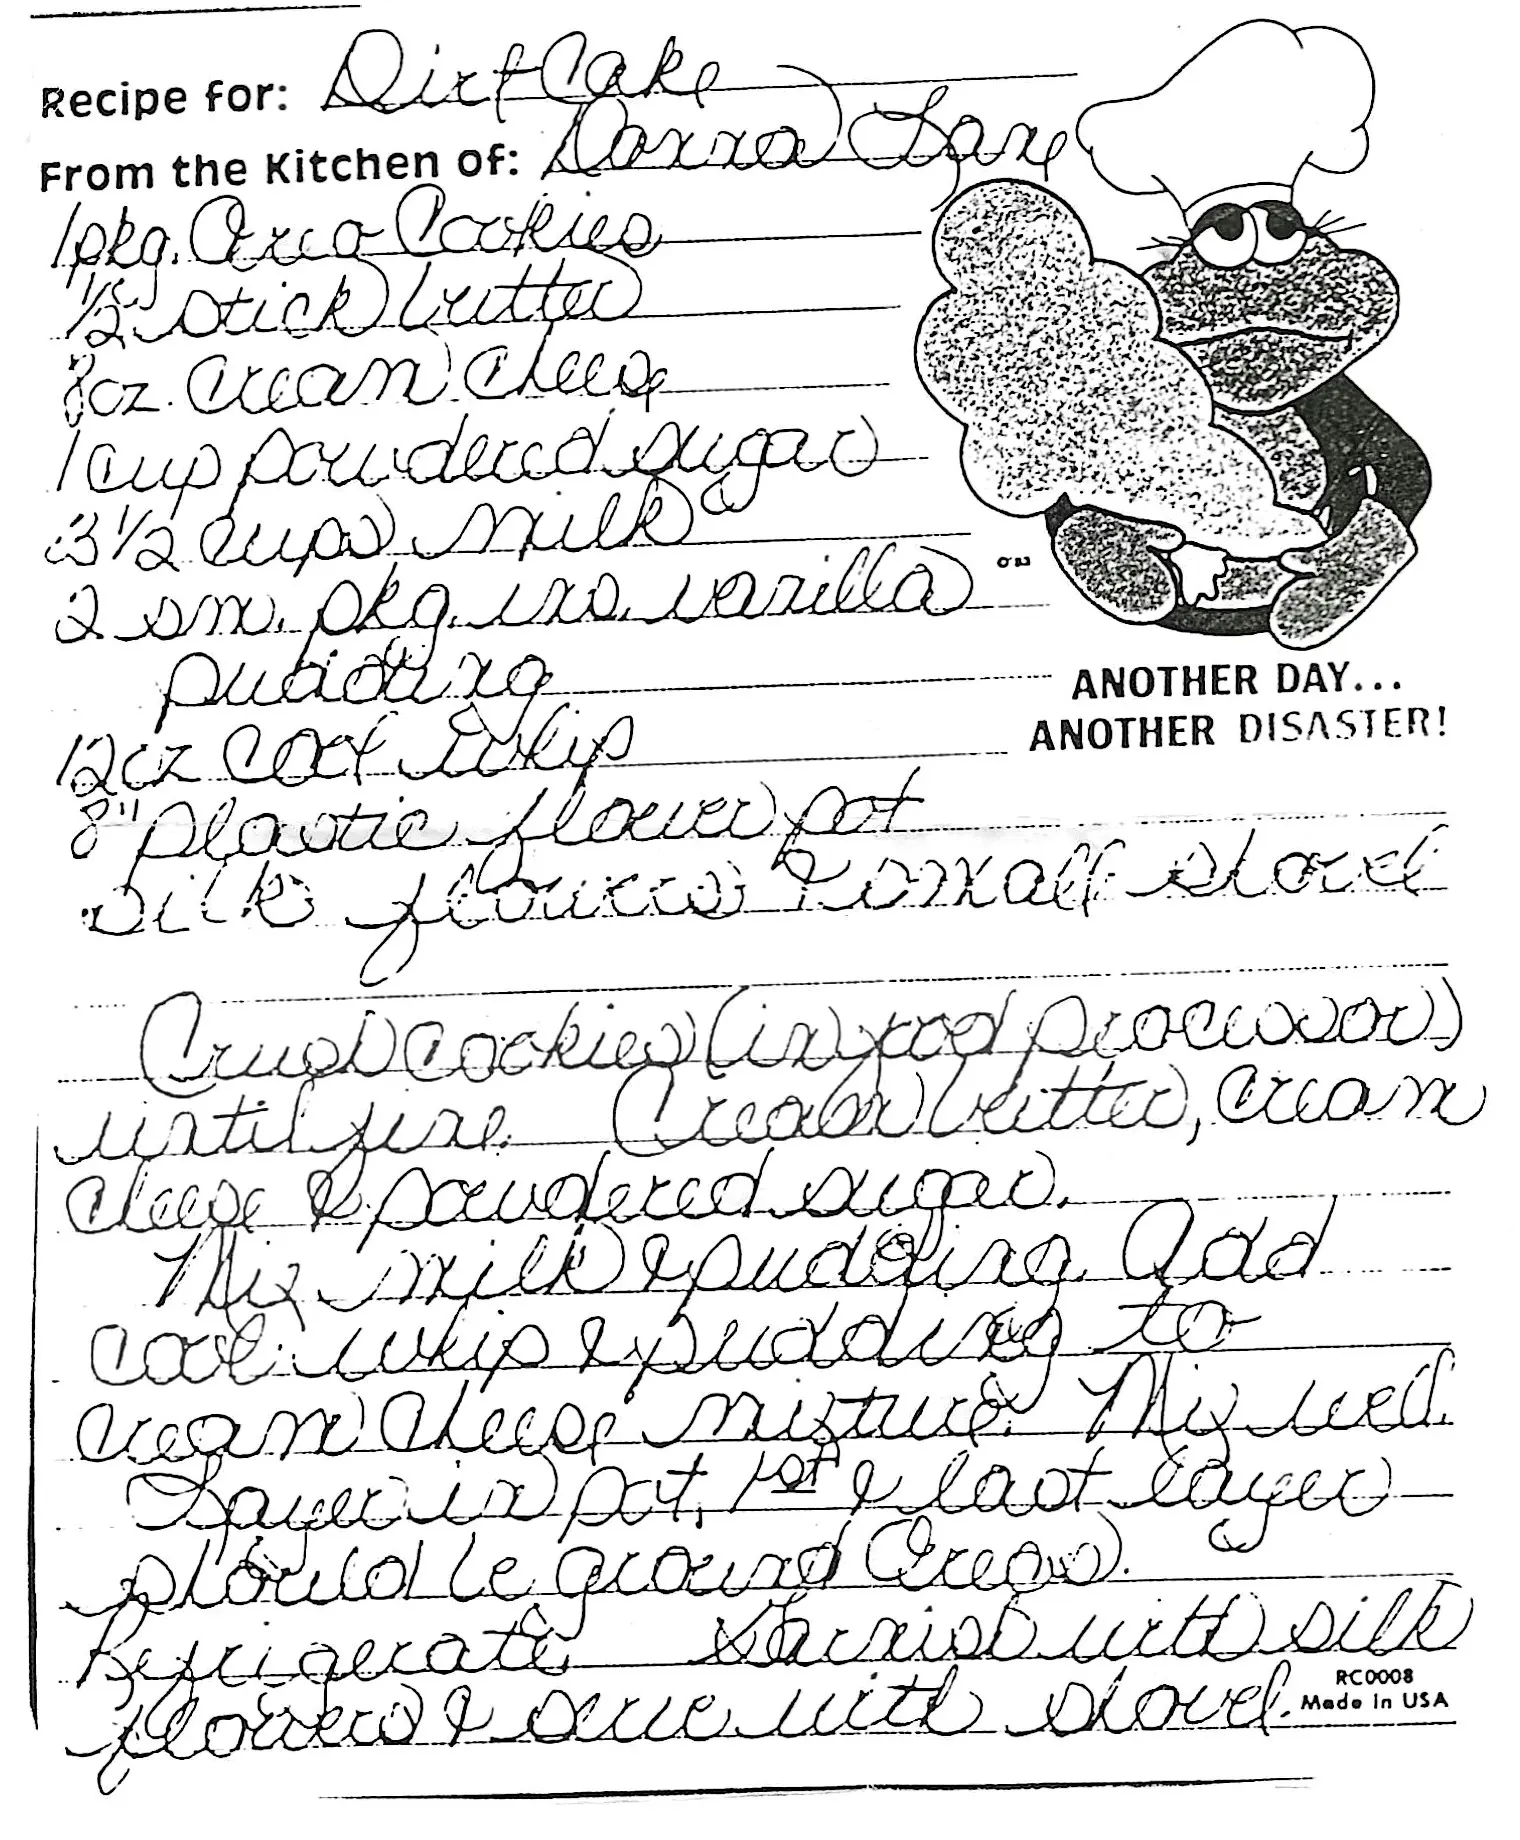 Recipe for: Dirt Cake
From the Kitchen of: Donna Lane
1 pkg. Oreo Cookies
1/2 stick butter
8 oz. cream cheese
1 cup powdered sugar
3 1/2 cups milk
2 sm. pkg. ins. vanilla
pudding
12 oz cool whip
8" plastic flower pot
silk flowers & small shovel
ANOTHER DAY...
ANOTHER DISASTER!
Crush cookies (in food processor)
until fine. Cream butter, cream
cheese & powdered sugar.
Mix milk & pudding. Add
cool whip & pudding to
cream cheese mixture. Mix well.
Layer in pot, 1st & last layer
should be ground Oreos.
Refrigerate. Garnish with silk
flowers & serve with shovel.
RC0008
Made in USA